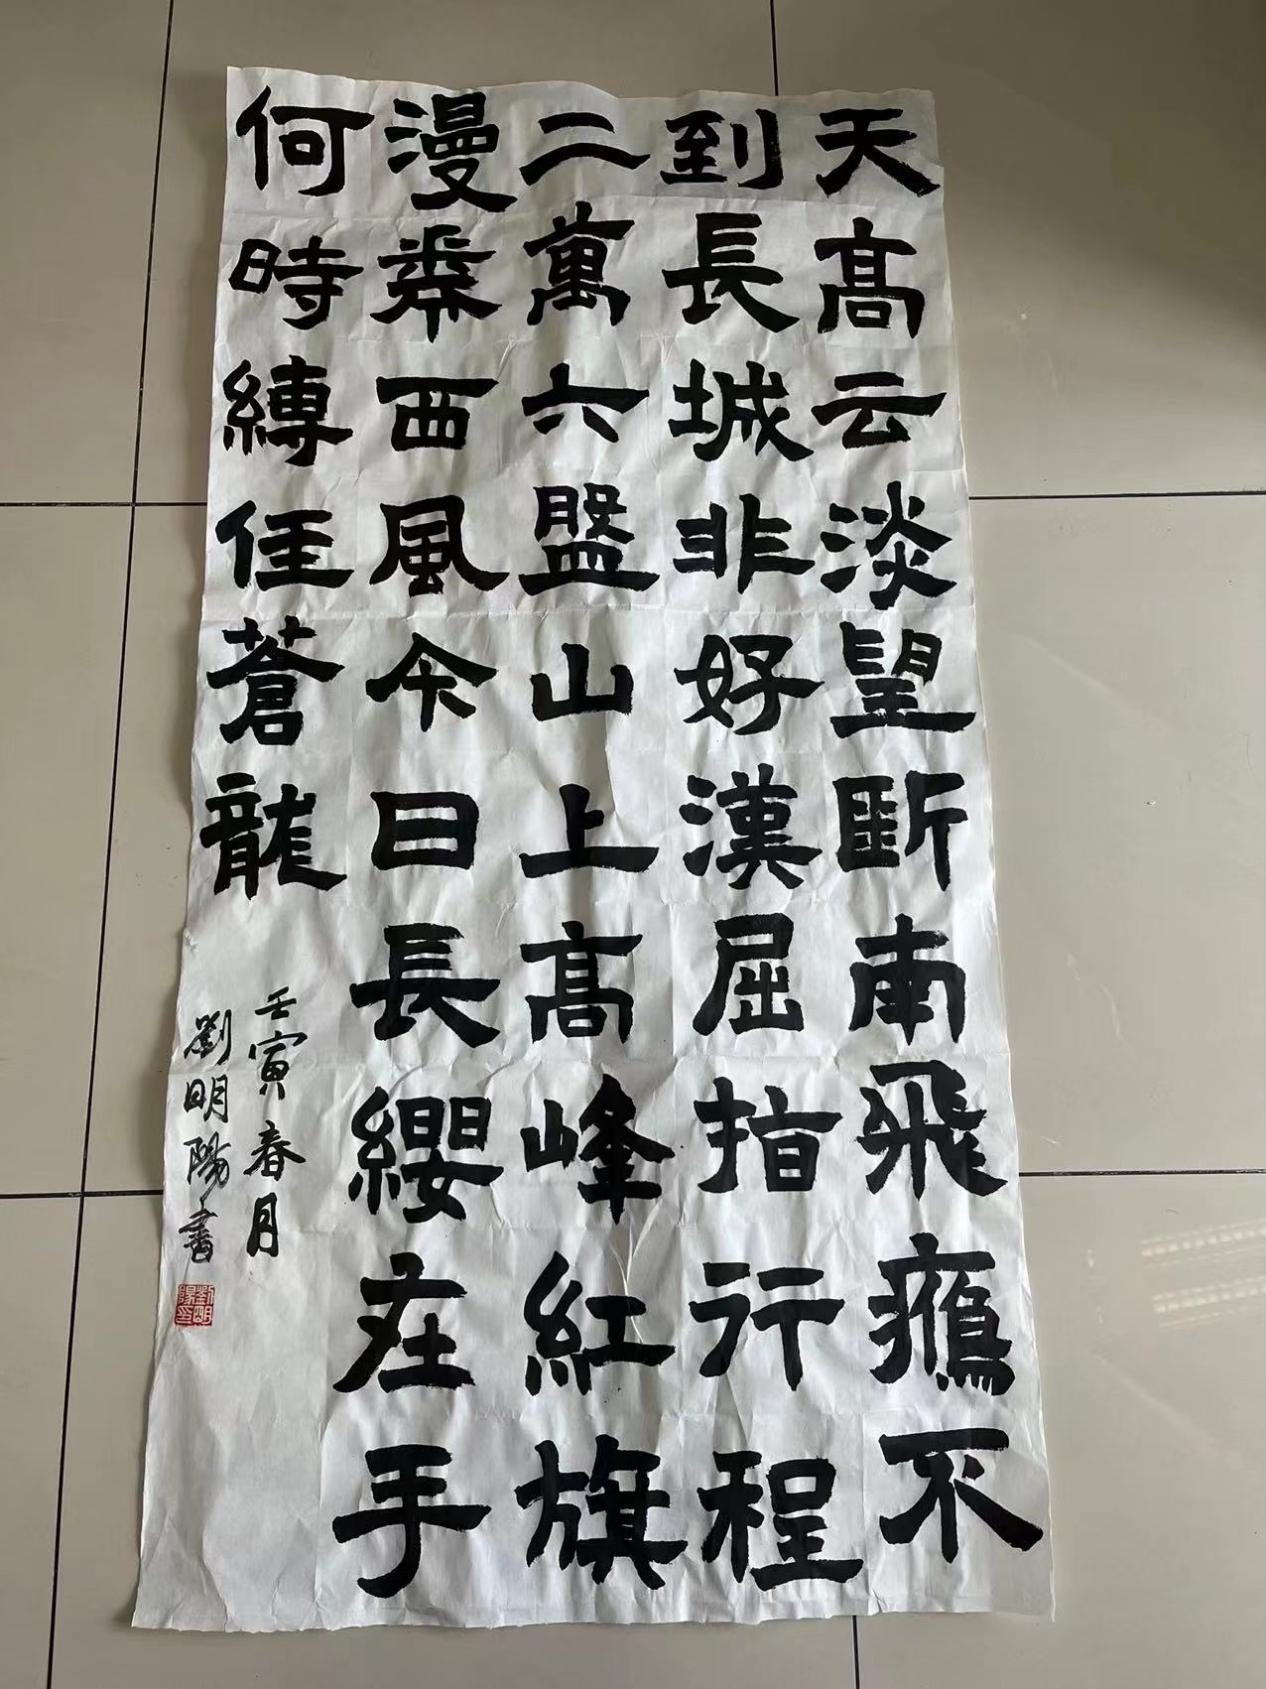 天髙云淡望断南飛鴈不
到長城非好漢屈指行程
二萬六盤山上髙峰紅旗
漫卷西風今日長纓在手
何時縛住蒼龍
壬寅春月
劉明陽書
劉明陽印